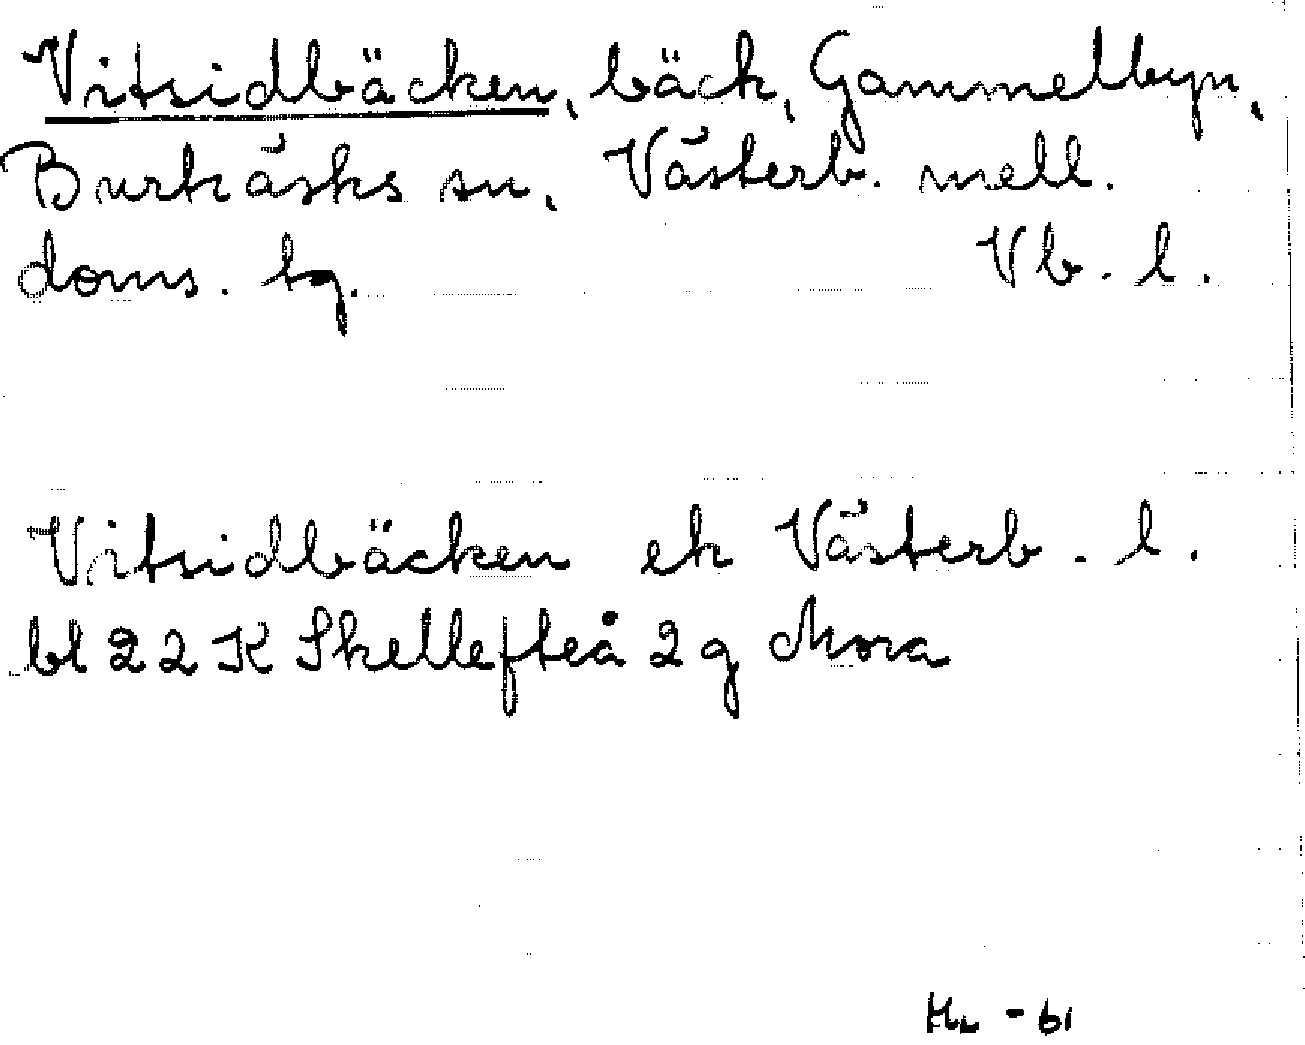 Vitsidbäcken, bäck, Gammelbyn,
Burträsks sn, Västerb. mell.
doms. tg. Vb. l.
Vitsidbäcken ek Västerb. l.
bl 22 K Skellefteå 2 g Mora
-61